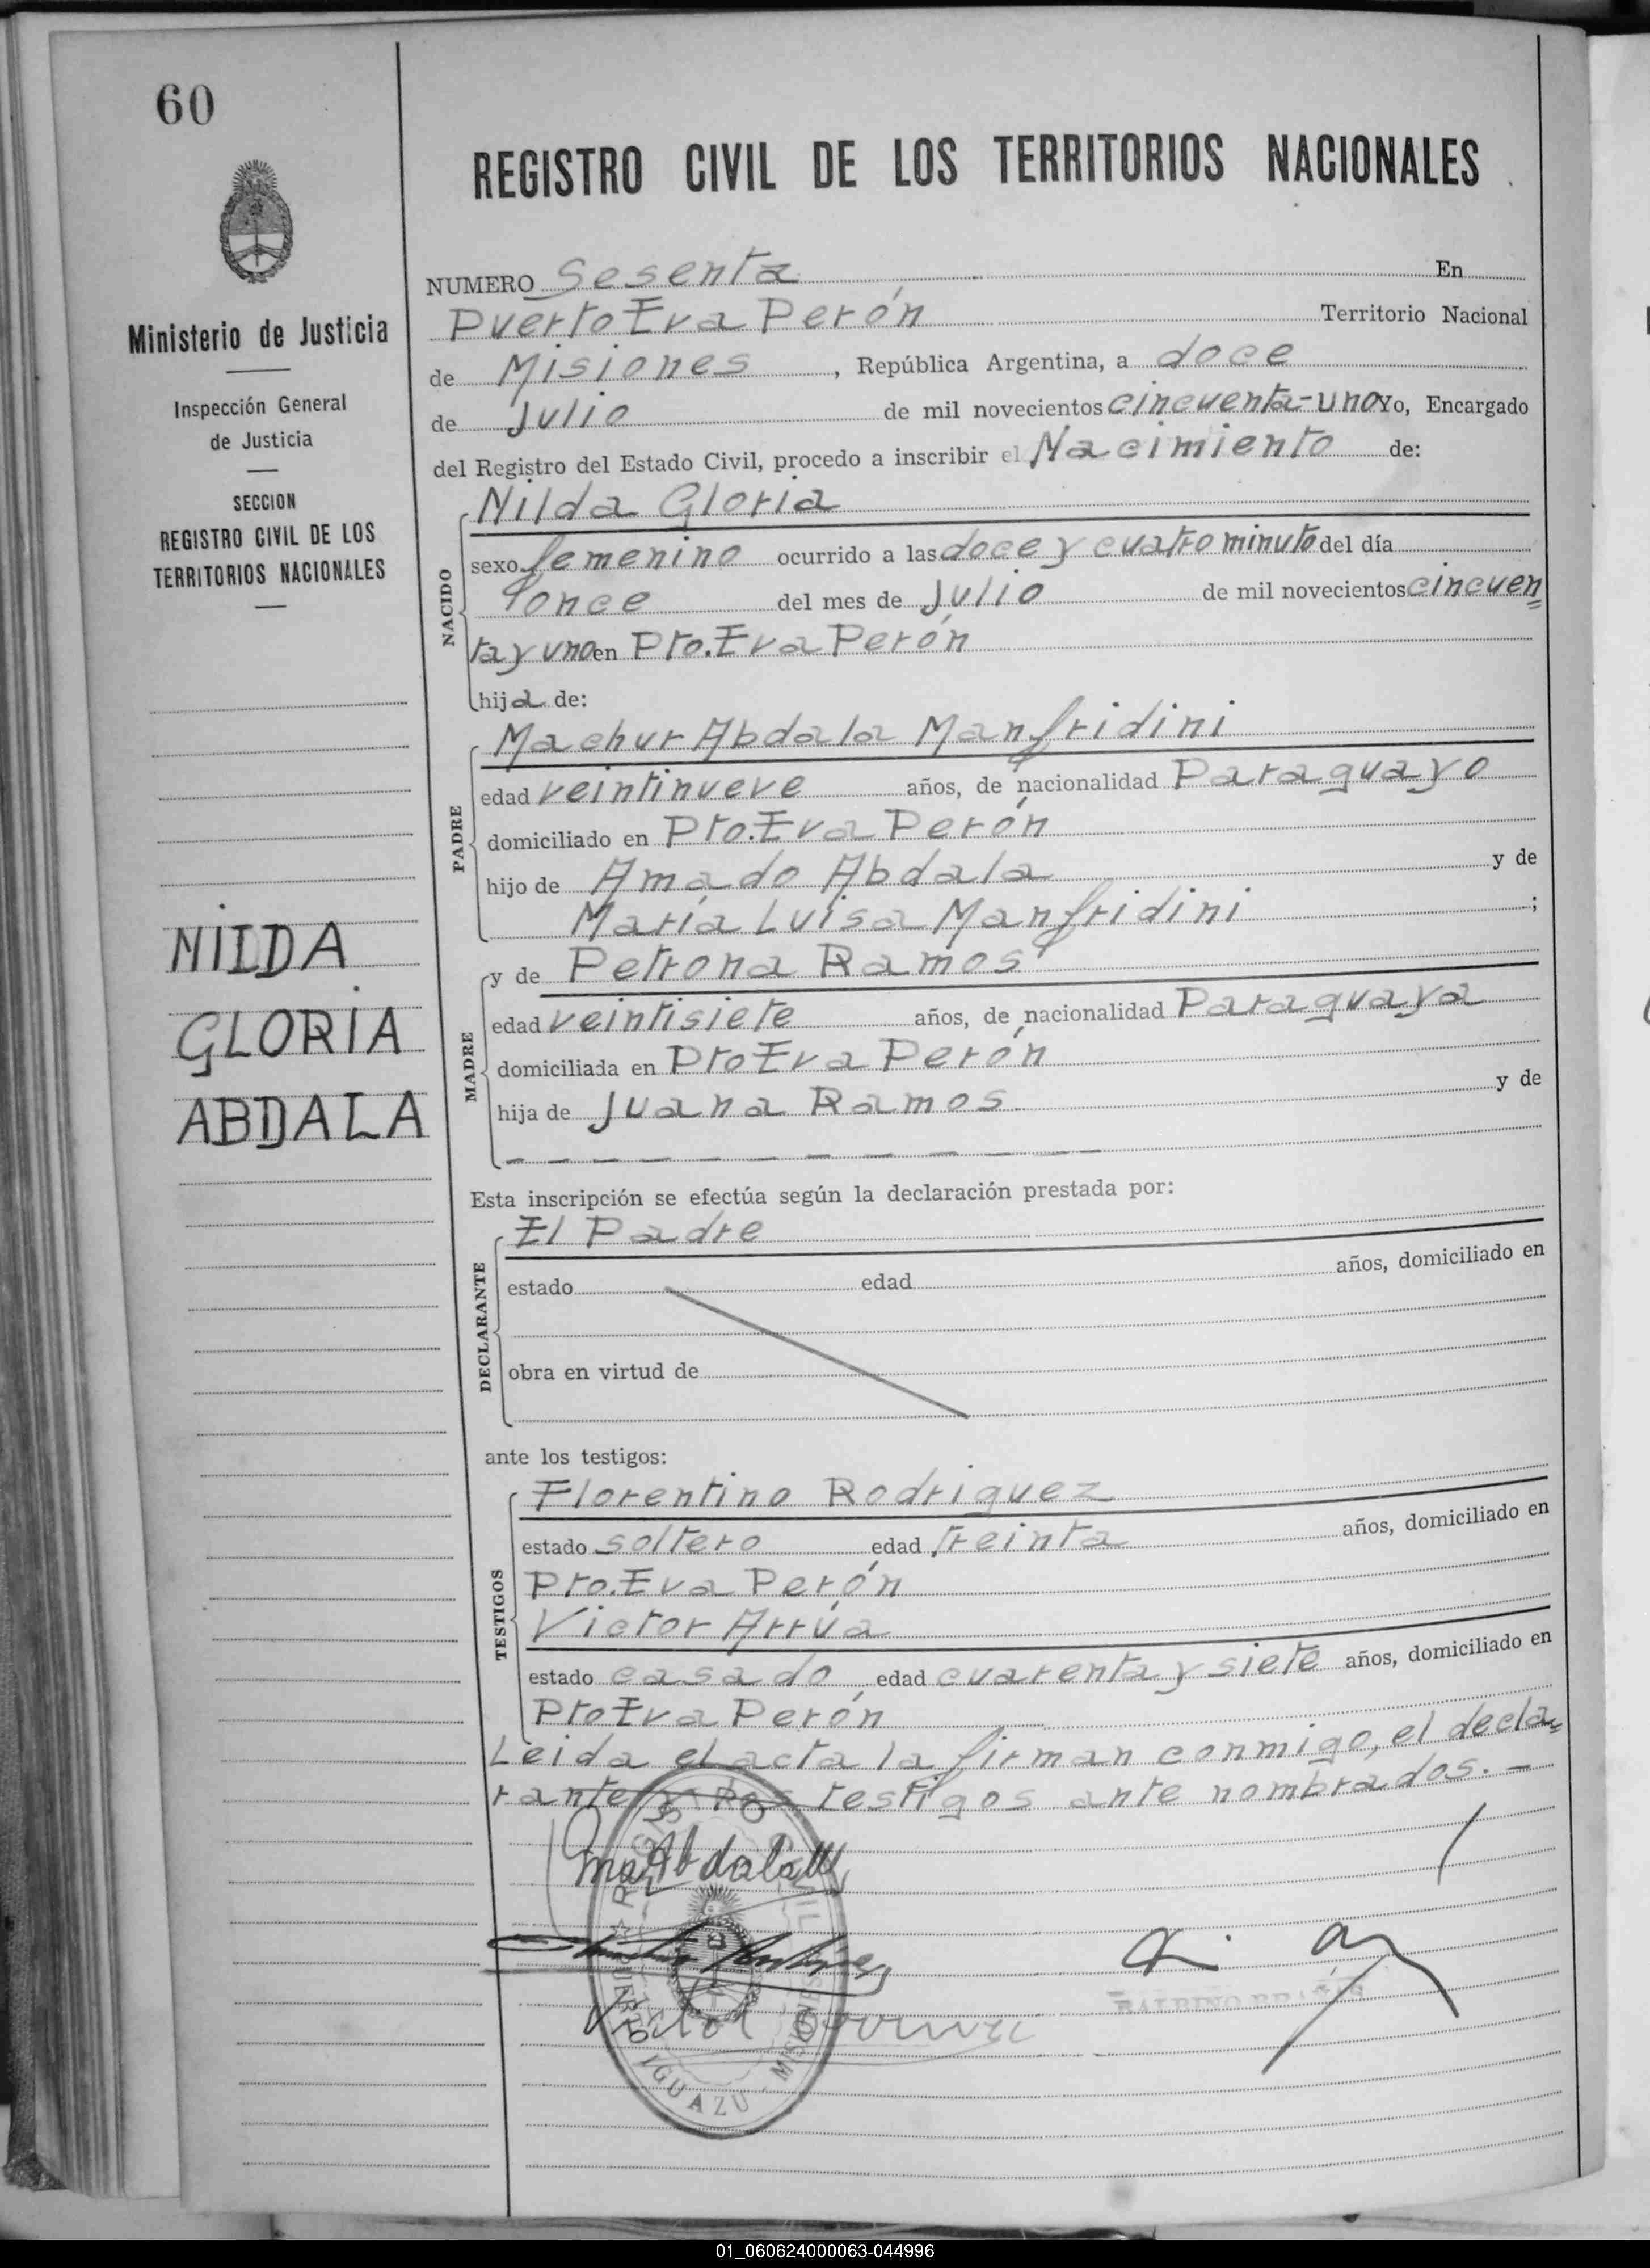 60
REGISTRO CIVIL DE LOS TERRITORIOS NACIONALES
Ministerio de Justicia
Inspección General
de Justicia
SECCION
REGISTRO CIVIL DE LOS
TERRITORIOS NACIONALES
NILDA
GLORIA
ABDALA
NUMERO Sesenta En
Puerto Eva Perón Territorio Nacional
de Misiones, República Argentina, a doce
de Julio de mil novecientos cincuenta-uno Yo, Encargado
del Registro del Estado Civil, procedo a inscribir el Nacimiento de:
NACIDO
Nilda Gloria
sexo femenino ocurrido a las doce y cuatro minuto del día
once del mes de Julio de mil novecientos cincuen=
ta y uno en Pto. Eva Perón
hija de:
PADRE
Machur Abdala Manfridini
edad veintinueve años, de nacionalidad Paraguayo
domiciliado en Pto. Eva Perón
hijo de Amado Abdala y de
María Luisa Manfridini ;
MADRE
y de Petrona Ramos
edad veintisiete años, de nacionalidad Paraguaya
domiciliada en Pto Eva Perón
hija de Juana Ramos y de
Esta inscripción se efectúa según la declaración prestada por:
DECLARANTE
El Padre
estado edad años, domiciliado en
obra en virtud de
ante los testigos:
TESTIGOS
Florentino Rodriguez
estado soltero edad treinta años, domiciliado en
Pto. Eva Perón
Victor Arrúa
estado casado edad cuarenta y siete años, domiciliado en
Pto Eva Perón
Leida el acta la firman conmigo, el decla=
rante y los testigos ante nombrados. -
M Abdala M
REGISTRO CIVIL
PUERTO IGUAZU - MISIONES
Victor
BALBINO
01_060624000063-044996